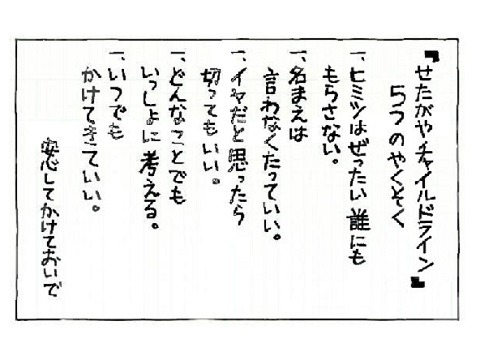 『せたがやチャイルドライン』
5つのやくそく
一、ヒミツはぜったい誰にも
もらさない。
一、名まえは
言わなくたっていい。
一、イヤだと思ったら
切ってもいい。
一、どんなことでも
いっしょに考える。
一、いつでも
かけてきていい。
安心してかけておいで